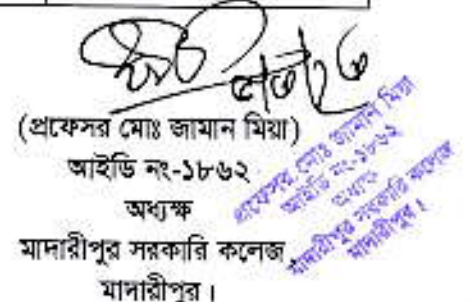 (প্রফেসর মোঃ জামান মিয়া)
আইডি নং-১৮৬২
অধ্যক্ষ
মাদারীপুর সরকারি কলেজ,
মাদারীপুর।
প্রফেসর মোঃ জামান মিয়া
আইডি নং-১৮৬২
অধ্যক্ষ
মাদারীপুর সরকারি কলেজ
মাদারীপুর।